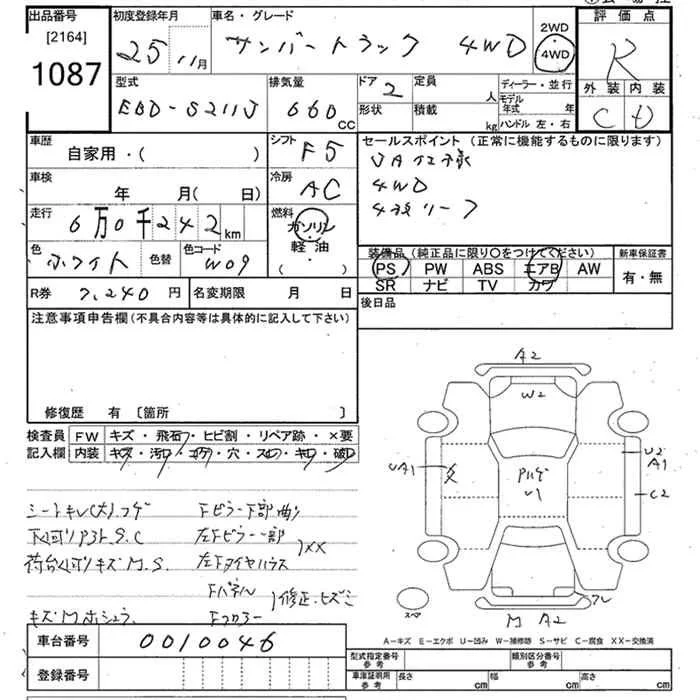 出品番号 初度登録年月 車名・グレード 2WD 評価点
[2164] 25 11月 サンバートラック 4WD 4WD R
1087
型式 排気量 ドア 2 定員 人 ディーラー・並行 外装 内装
EBD-S211J 660 CC 形状 積載 kg モデル年式 年 C D
ハンドル 左・右
車歴 シフト F5 セールスポイント (正常に機能するものに限ります)
自家用・( ) JA仕様
車検 冷房 AC 4WD
年 月(日)
走行 6万0千242km 燃料 ガソリン
軽・油
( )
色 ホワイト 色替 色コード W09 装備品(純正品に限り○をつけてください) 新車保証書
PS PW ABS エアB AW 有・無
SR ナビ TV カワ
R券 7,240円 名変期限 月 日 後日品
注意事項申告欄(不具合内容等は具体的に記入して下さい)
修復歴 有 〔箇所 〕
検査員 FW キズ・飛石・ヒビ割・リペア跡・×要
記入欄 内装 キズ・汚レ・コゲ・穴・スレ・キレ・破レ
シートキレ(大)、コゲ Fピラー下部曲り
下廻り P3ト、S、C 左Fピラー一部
荷台くぼりキズM、S、 左FタイヤハウスXX
Fパネル
修正、ヒズミ
Fフロアー
A2
W2
UA1
U2
A1
C2
スペア
M A2
A-キズ E-エクボ U-凹み W-補修跡 S-サビ C-腐食 XX-交換済
車台番号 0010046
型式指定番号 参考 類別区分番号 参考
登録番号 車庫証明用 参考 長さ cm 幅 cm 高さ cm